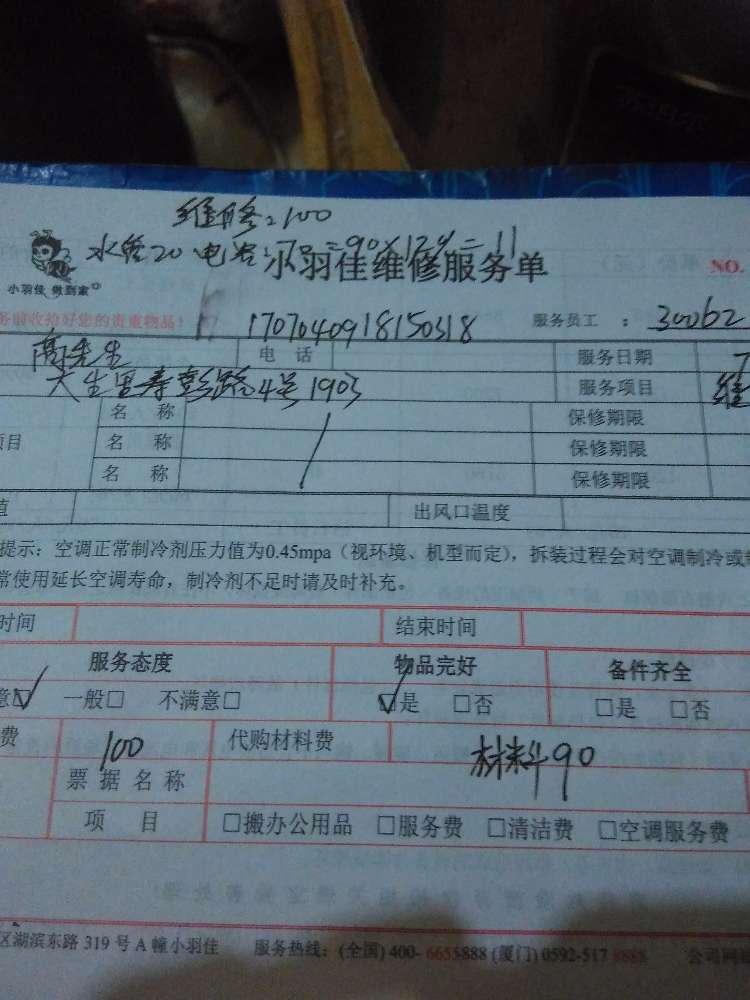 维修:100
水管20 电容:70=90×12%=11
小羽佳维修服务单
NO.
小羽佳 做到家
务前收拾好您的贵重物品!
1707040918150318
服务员工 : 30062
电 话
服务日期 7
大生里寿彭路4号1903
服务项目 维
名 称 保修期限
项目 名 称 保修期限
名 称 保修期限
值 出风口温度
提示:空调正常制冷剂压力值为0.45mpa(视环境、机型而定),拆装过程会对空调制冷或
常使用延长空调寿命,制冷剂不足时请及时补充。
时间 结束时间
服务态度 物品完好 备件齐全
意☑ 一般□ 不满意□ ☑是 □否 □是 □否
费 100 代购材料费 材料90
票 据 名 称
项 目 □搬办公用品 □服务费 □清洁费 □空调服务费
区湖滨东路 319 号 A 幢小羽佳 服务热线:(全国) 400- 6655888 (厦门) 0592-517 8888 公司网